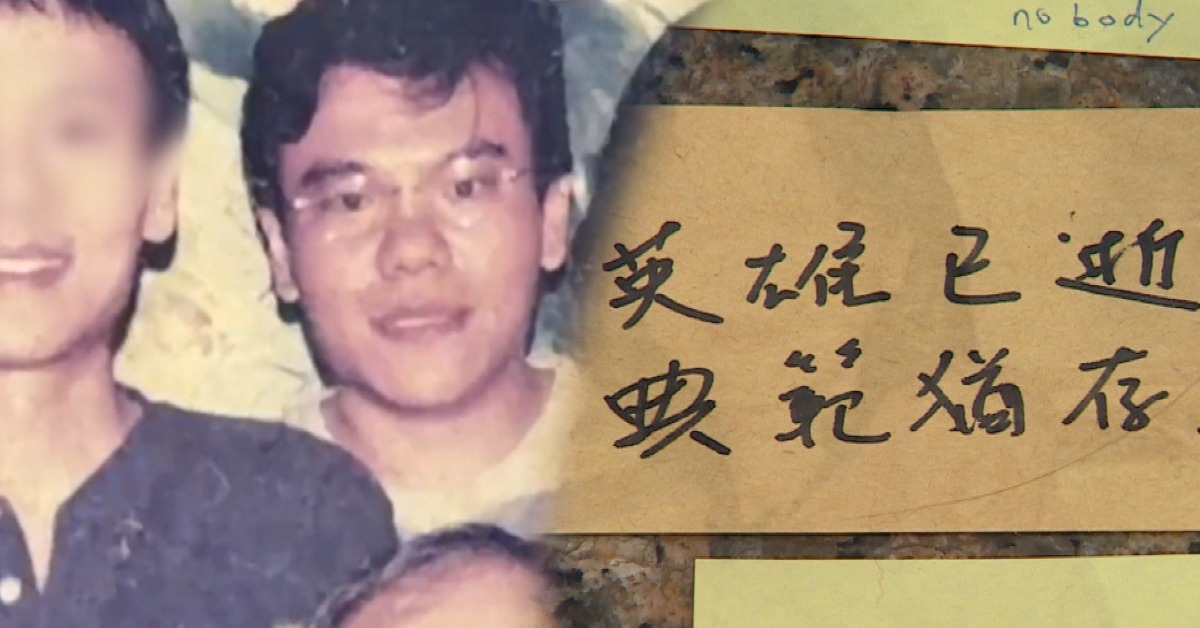 no body
英雄已逝
典範猶存